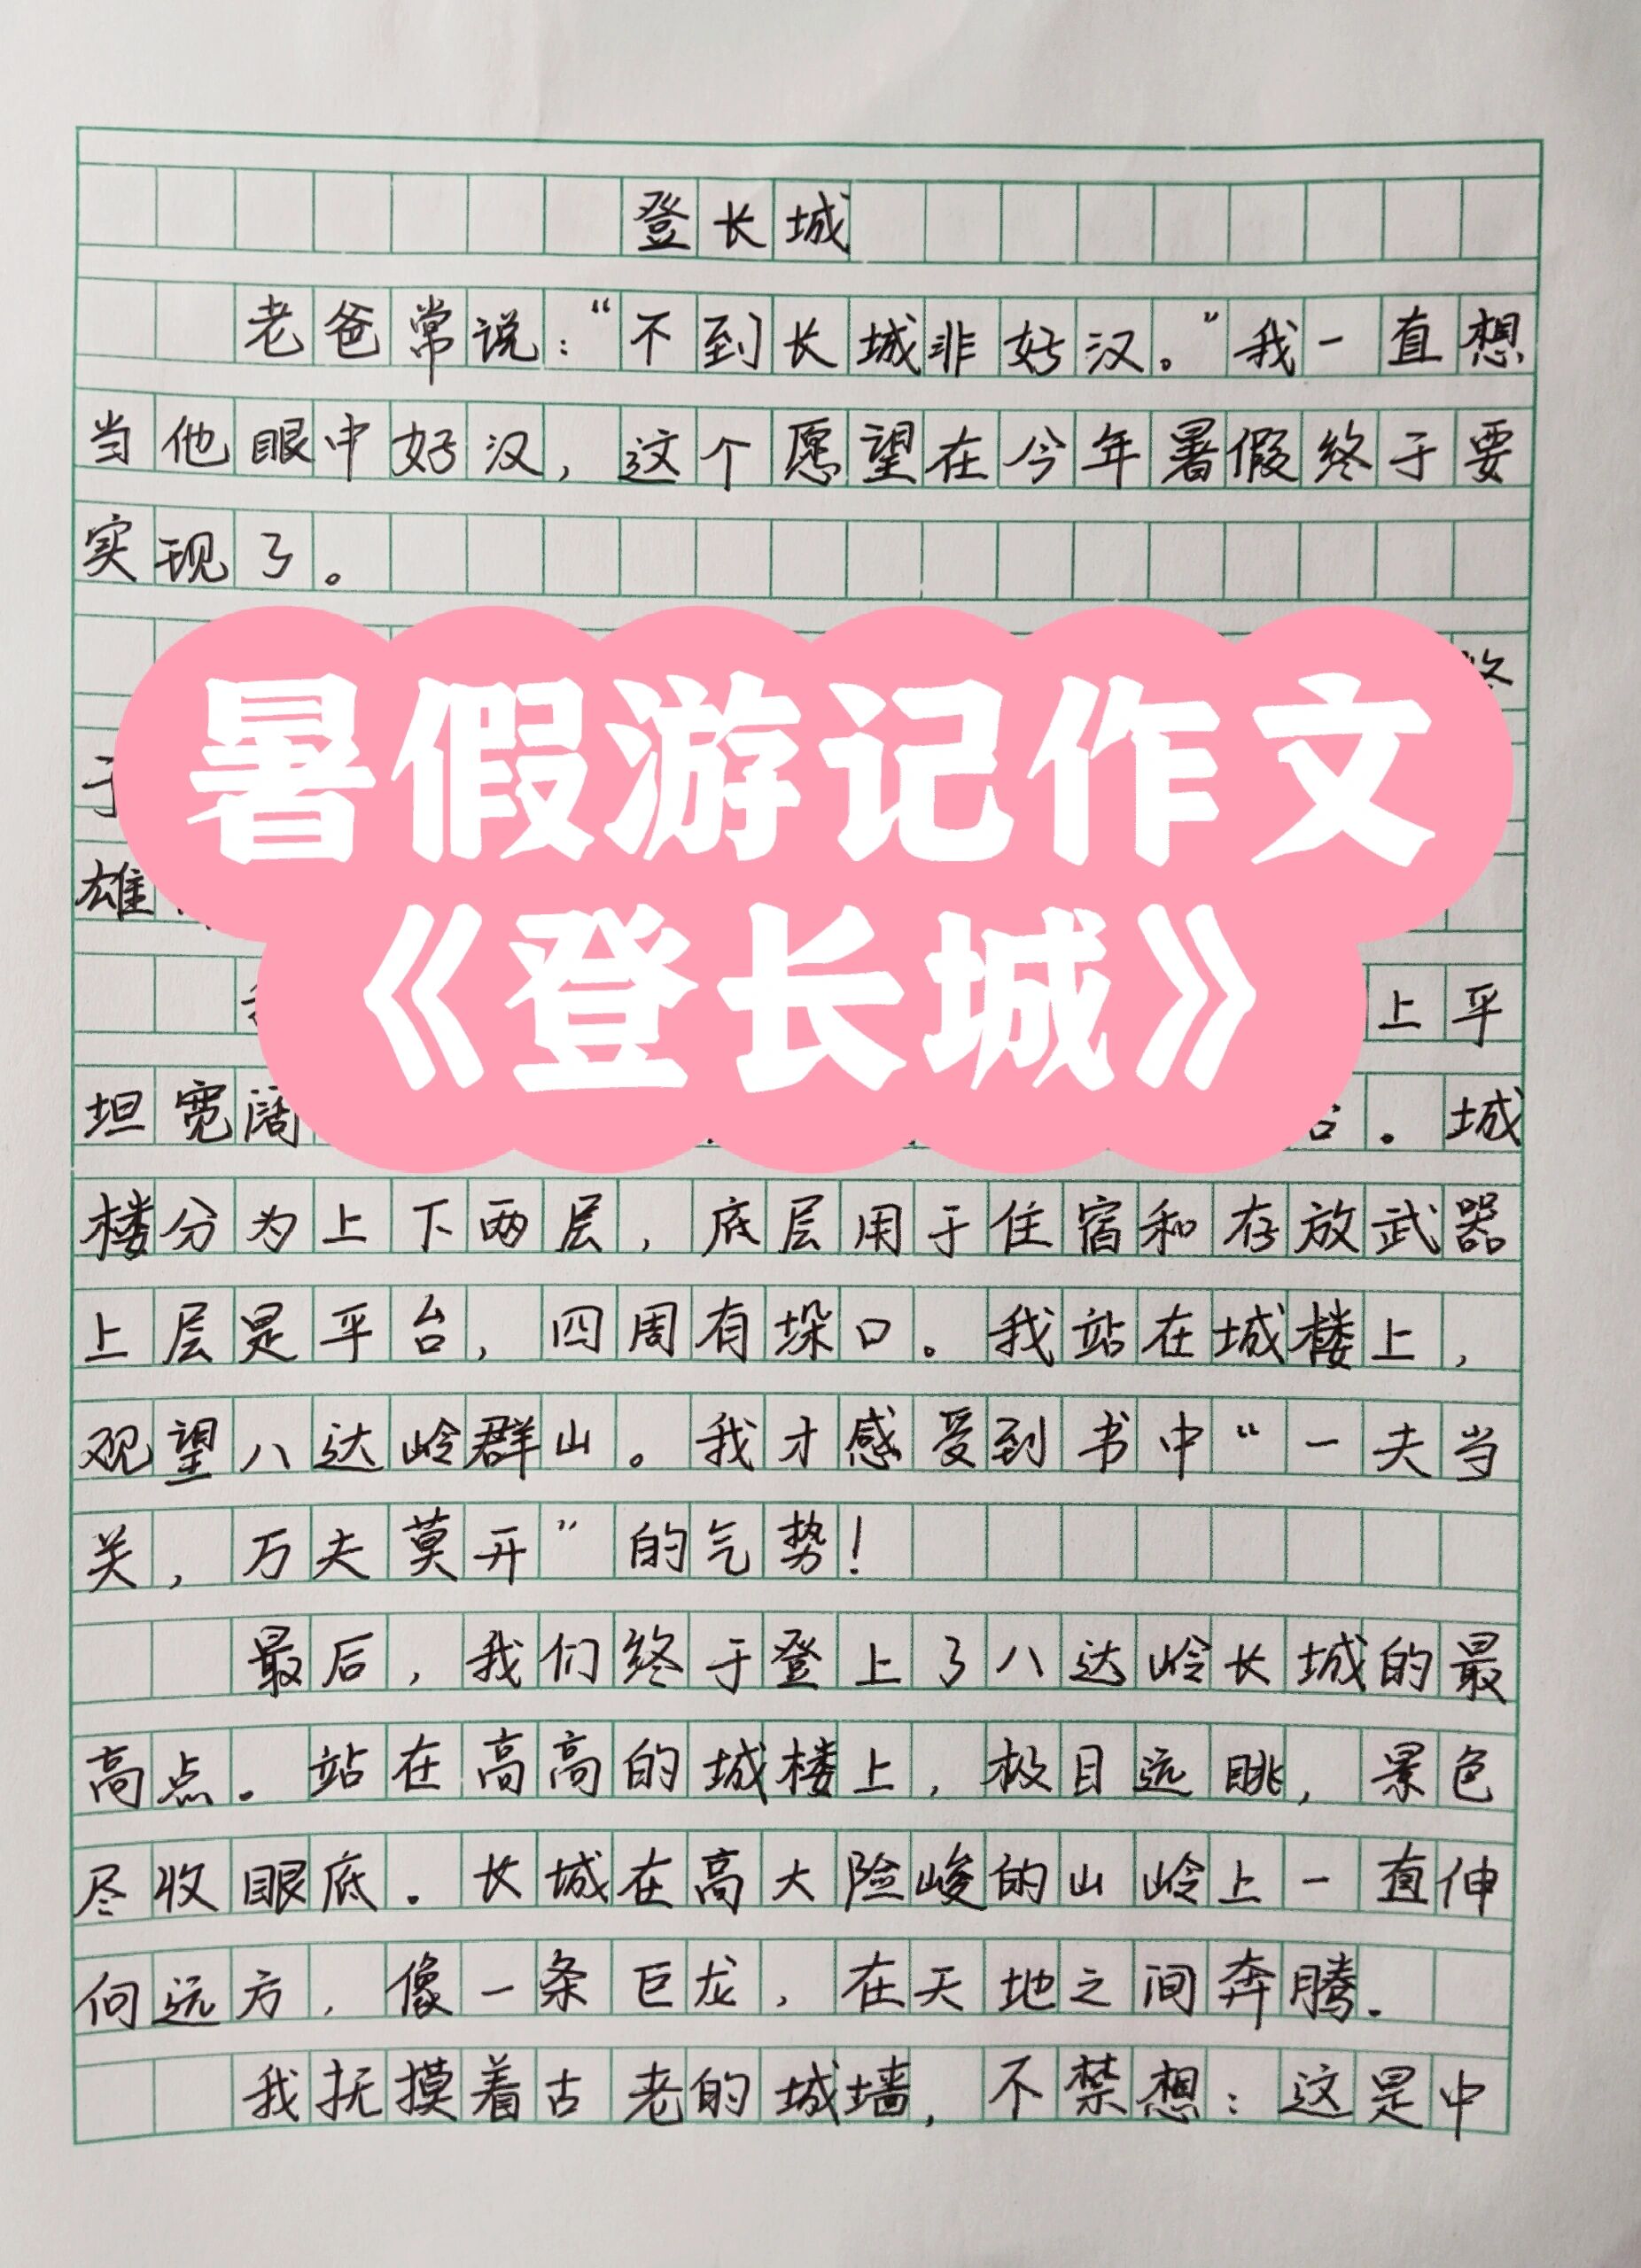 登长城
老爸常说：“不到长城非好汉。”我一直想
当他眼中好汉，这个愿望在今年暑假终于要
实现了。
暑假游记作文
雄
《登长城》
上平
坦宽阔
。城
楼分为上下两层，底层用于住宿和存放武器
上层是平台，四周有垛口。我站在城楼上，
观望八达岭群山。我才感受到书中“一夫当
关，万夫莫开”的气势！
最后，我们终于登上了八达岭长城的最
高点。站在高高的城楼上，极目远眺，景色
尽收眼底。长城在高大险峻的山岭上一直伸
向远方，像一条巨龙，在天地之间奔腾。
我抚摸着古老的城墙，不禁想：这是中